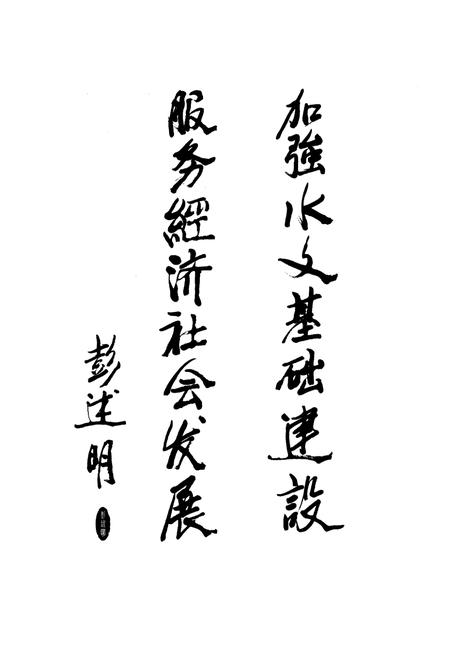 加強水文基础建設
服务經济社会发展
彭述明